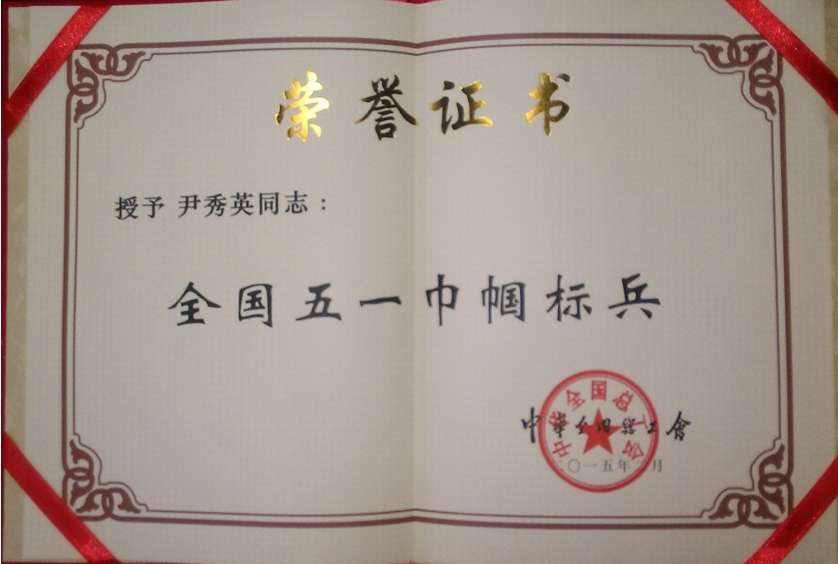 荣誉证书
授予 尹秀英同志：
全国五一巾帼标兵
中华全国总工会
中华全国总工会
二〇一五年 月